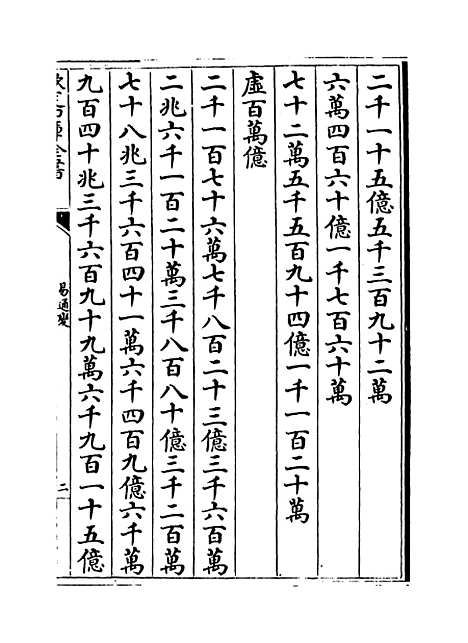 二千一十五億五千三百九十二萬
六萬四百六十億一千七百六十萬
七十二萬五千五百九十四億一千一百二十萬
虛百萬億
二千一百七十六萬七千八百二十三億三千六百萬
二兆六千一百二十萬三千八百八十億三千二百萬
七十八兆三千六百四十一萬六千四百九億六千萬
九百四十兆三千六百九十九萬六千九百一十五億
易通變
二